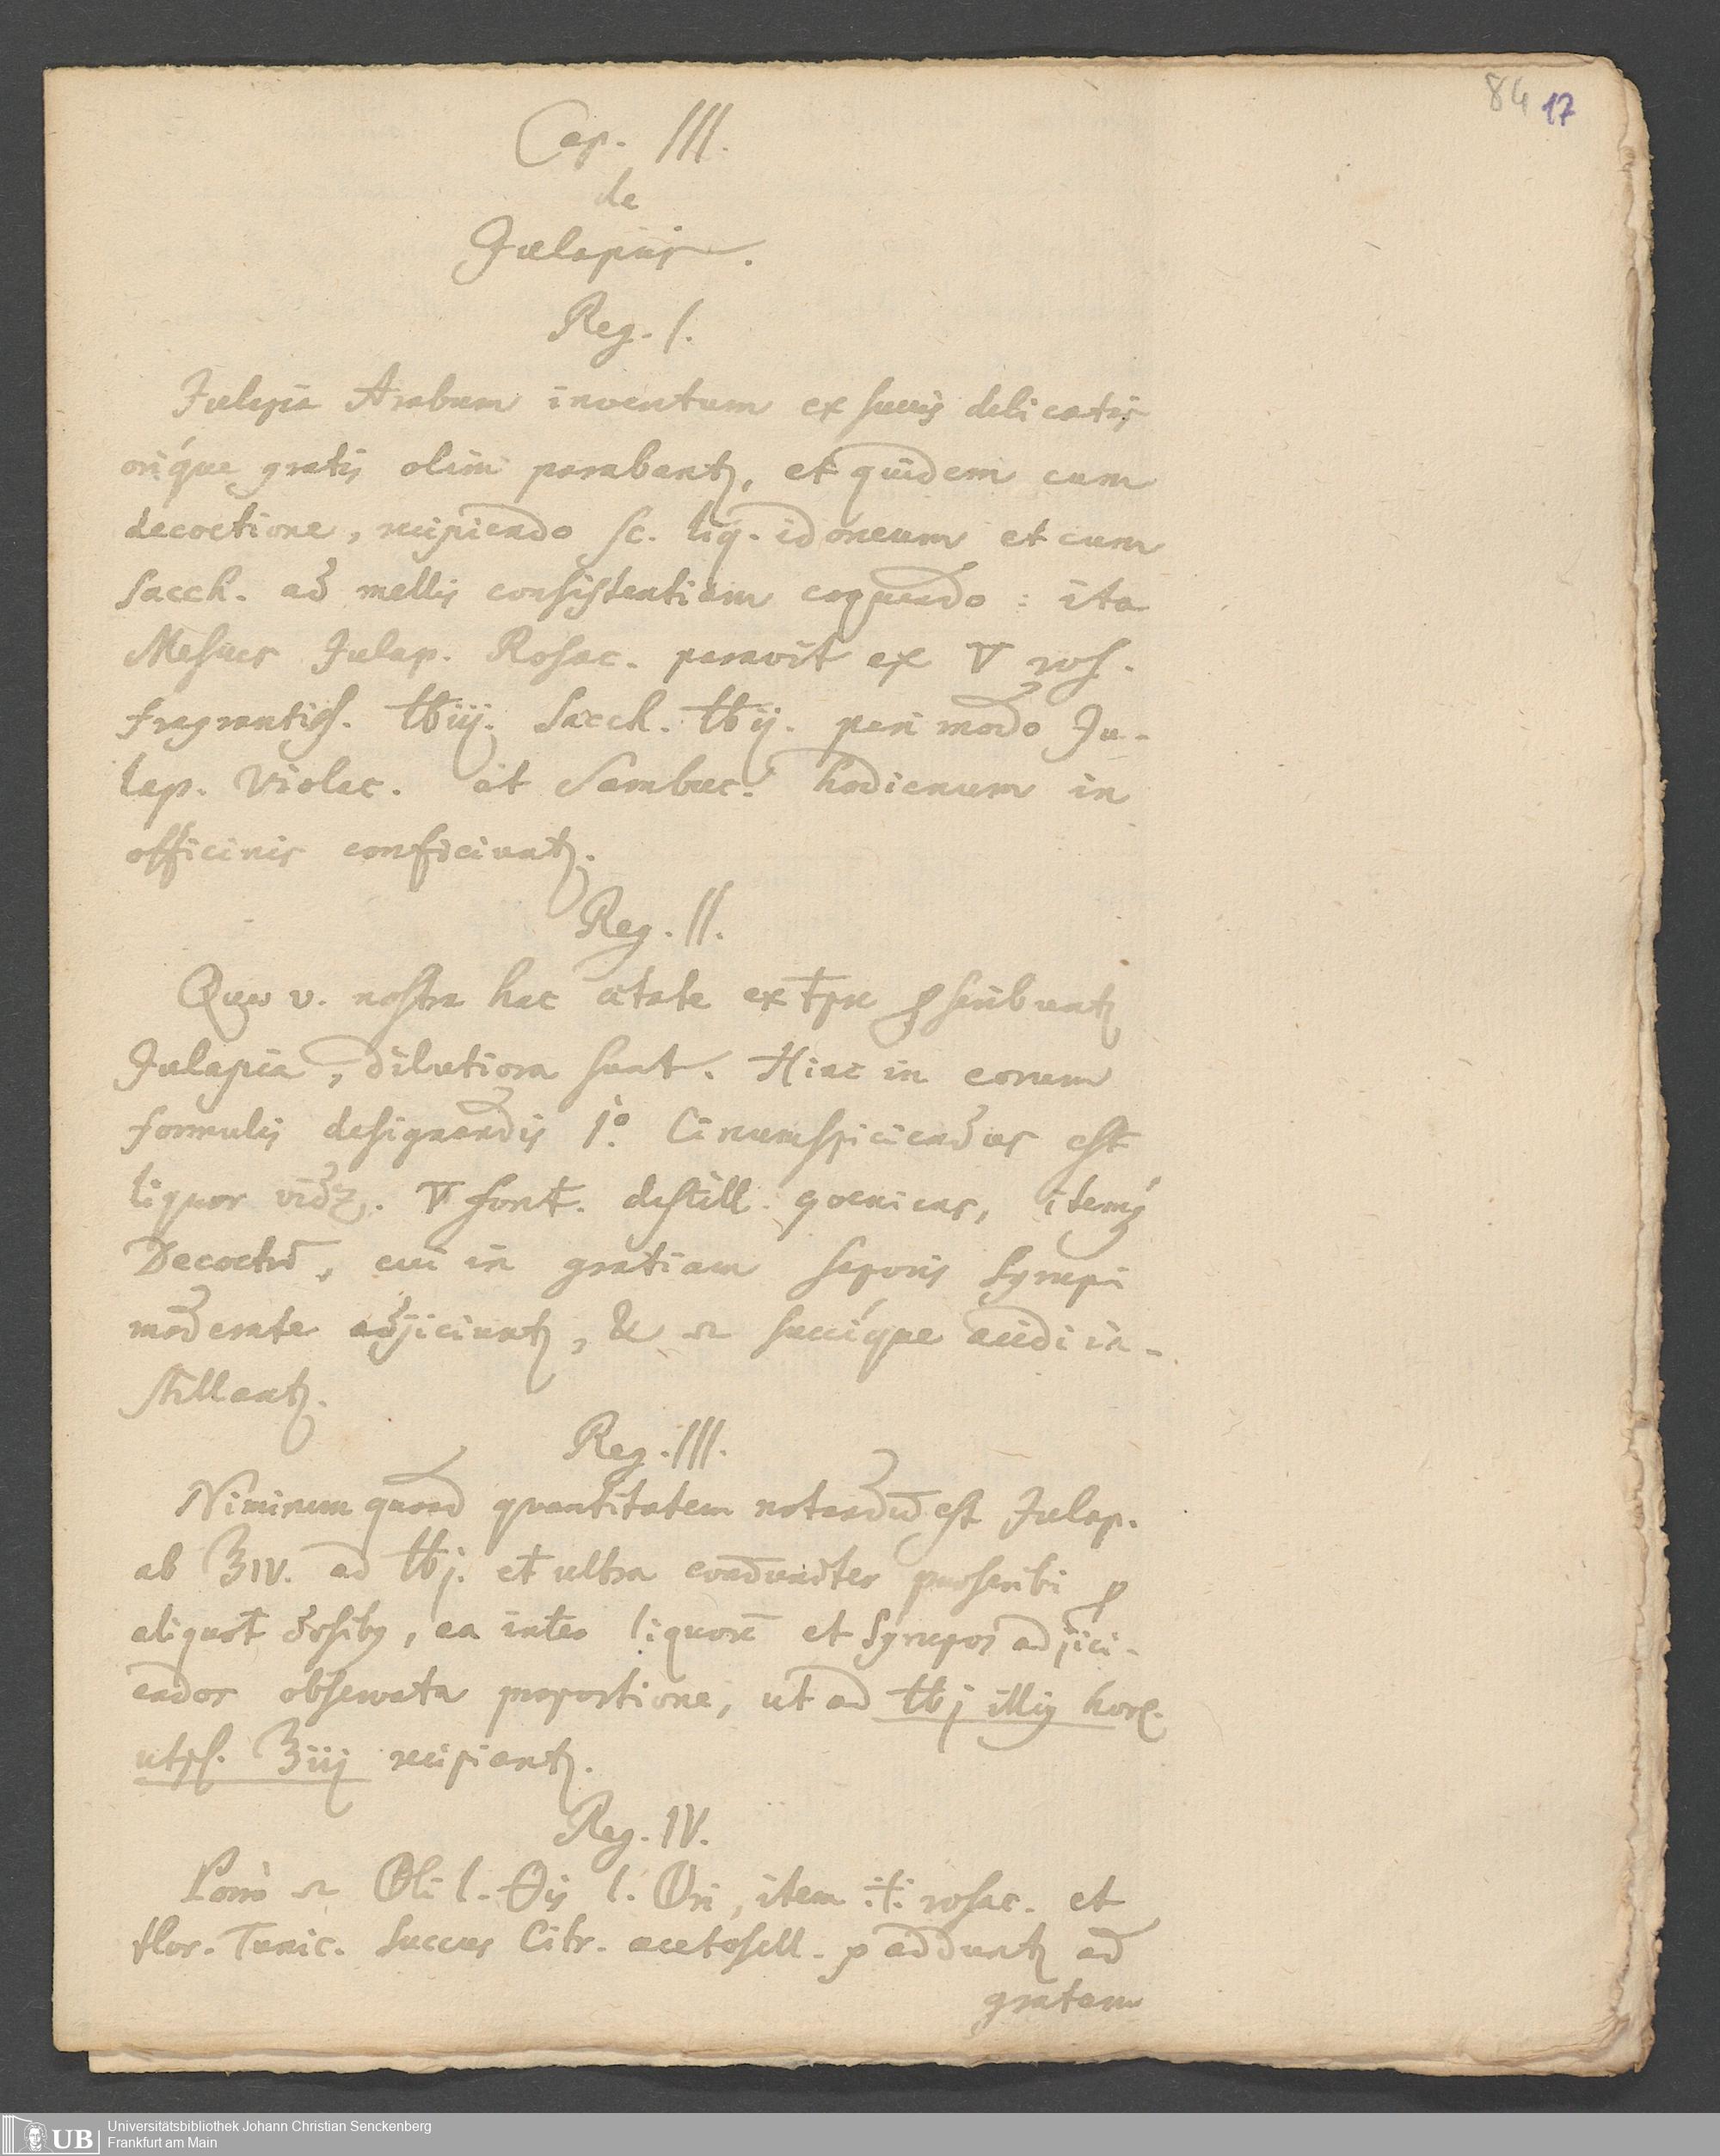 84 17
Cap. III.
de
Julapiis.
Reg. I.
Julapia Arabum inventum ex succis delicatis
oriq́ue gratis olim parabantꝫ, et quidem cum
decoctione, recipiendo sc. liq. idoneum et cum
Sacch. ad mellis consistentiam coquendo : ita
Mesues Julap. Rosac. paravit ex ▽ ros.
fragrantiss. ℔iij. Sacch. ℔ij. pari modo Ju-
lap. Violac. et Sambuc. hodienum in
officinis conficiuntꝫ.
Reg. II.
Quæ v. nostra hac ætate extpe ꝓscribuntꝫ
Julapia, dilutiora sunt. Hinc in eorum
formulis designandis 1º. Circumspiciendus est
liquor vidz. ▽ font. destill. item
Decoctū, cui in gratiam saporis Syrupi
moderate adjiciuntꝫ, & succiq́ue acidi in-
stillantꝫ.
Reg. III.
Nimirum quoad quantitatem notandū est Julap.
ab ℥IV. ad ℔j. et ultra præscribi ꝓ
aliquot dosibꝫ, ea inter liquorē et Syrupos adjici-
endos observata proportione, ut ad ℔j illiꝫ horꝫ.
℥iij recipiantꝫ.
Reg. IV.
Porrò item rosac. et
flor. Tunic. Succus Citr. acetosell. adduntꝫ ad
gratam
Universitätsbibliothek Johann Christian Senckenberg
Frankfurt am Main
UB